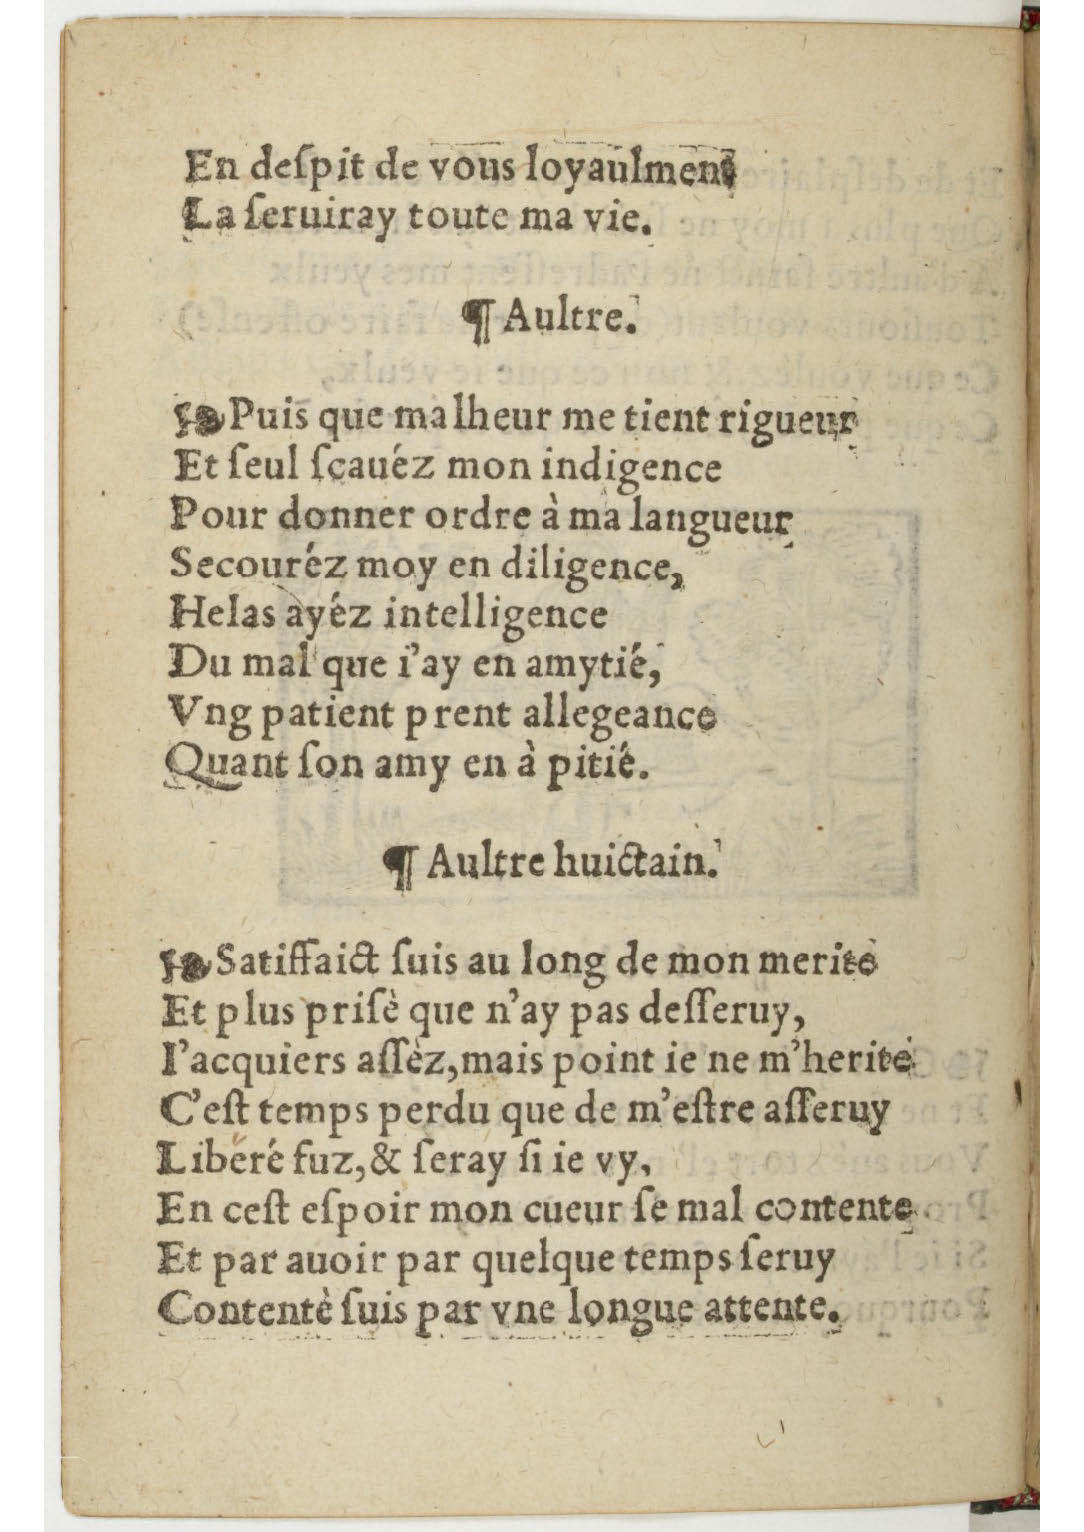 En deſpit de vous loyaulment
La ſeruiray toute ma vie.
¶ Aultre.
❧ Puis que malheur me tient rigueur
Et ſeul ſcauéz mon indigence
Pour donner ordre à ma langueur
Secouréz moy en diligence,
Helas ayéz intelligence
Du mal que i'ay en amytié,
Vng patient prent allegeance
Quant ſon amy en à pitié.
¶ Aultre huictain.
❧ Satiſfaict ſuis au long de mon merite
Et plus priſè que n'ay pas deſſeruy,
I'acquiers aſſèz, mais point ie ne m'herite
C'eſt temps perdu que de m'eſtre aſſeruy
Liberé fuz, & ſeray ſi ie vy,
En ceſt eſpoir mon cueur ſe mal contente
Et par auoir par quelque temps ſeruy
Contentè ſuis par vne longue attente.